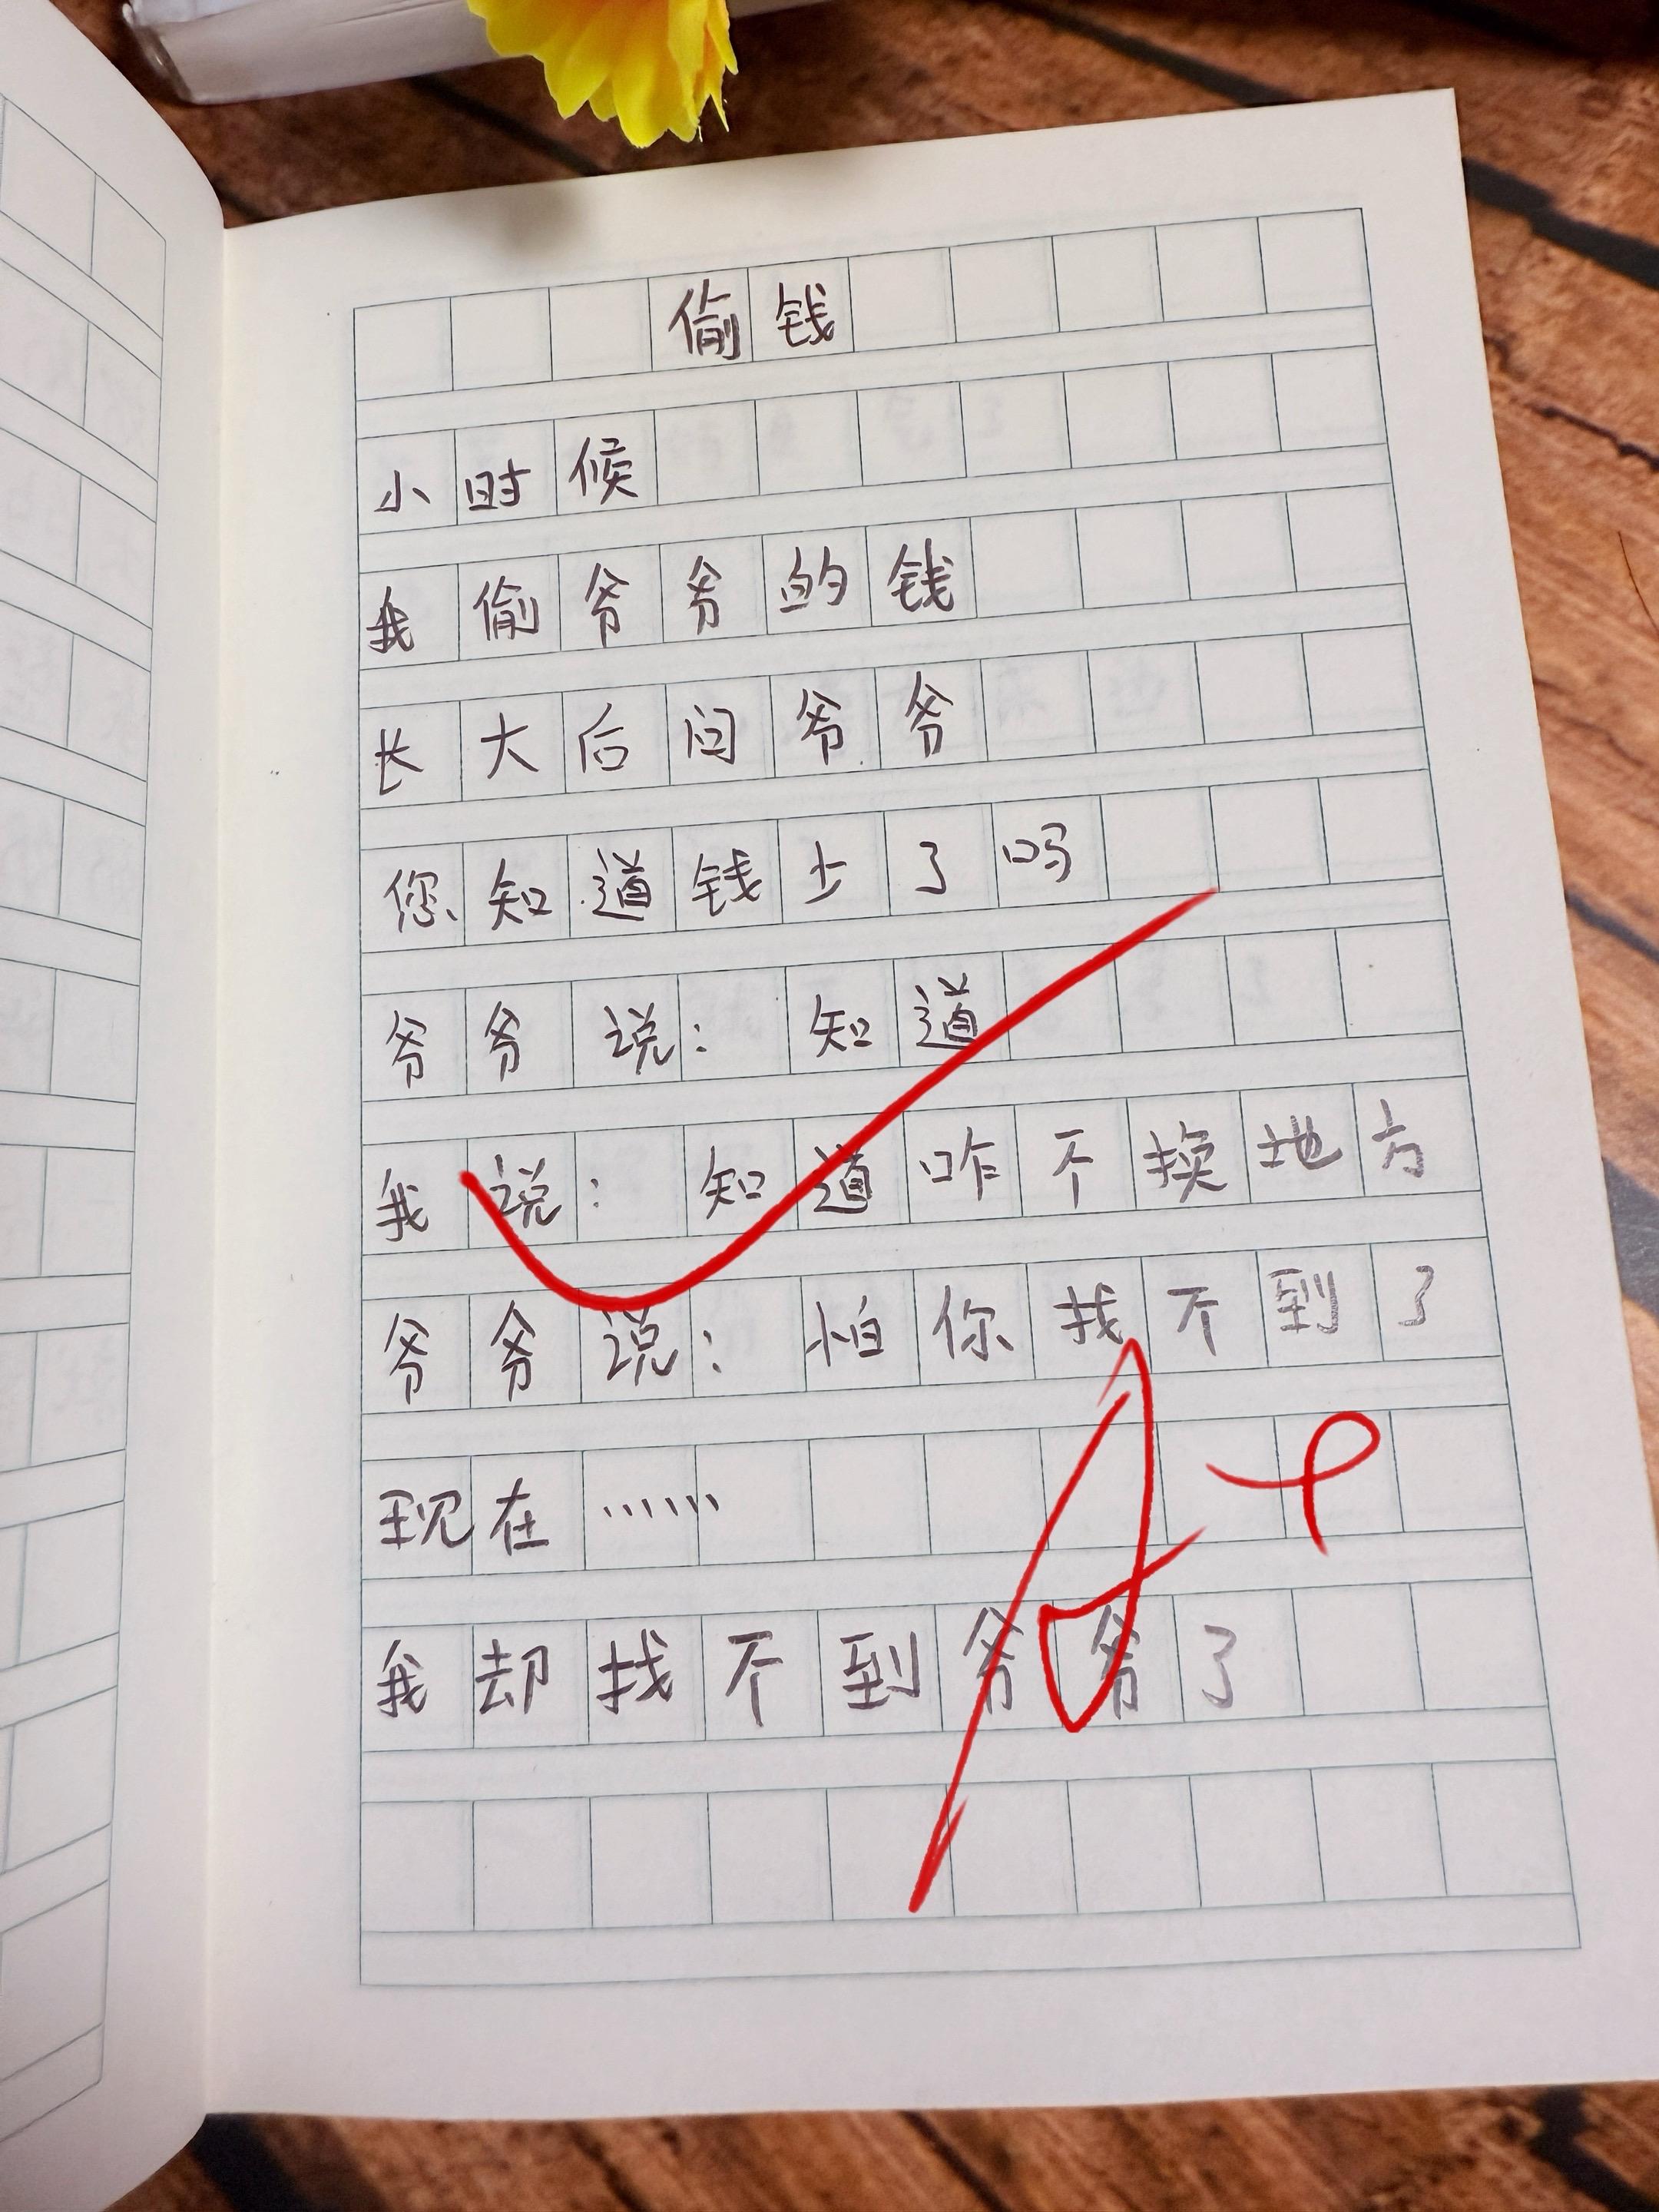 偷钱
小时候
我偷爷爷的钱
长大后问爷爷
您知道钱少了吗
爷爷说：知道
我说：知道咋不换地方
爷爷说：怕你找不到了
现在……
我却找不到爷爷了
A+